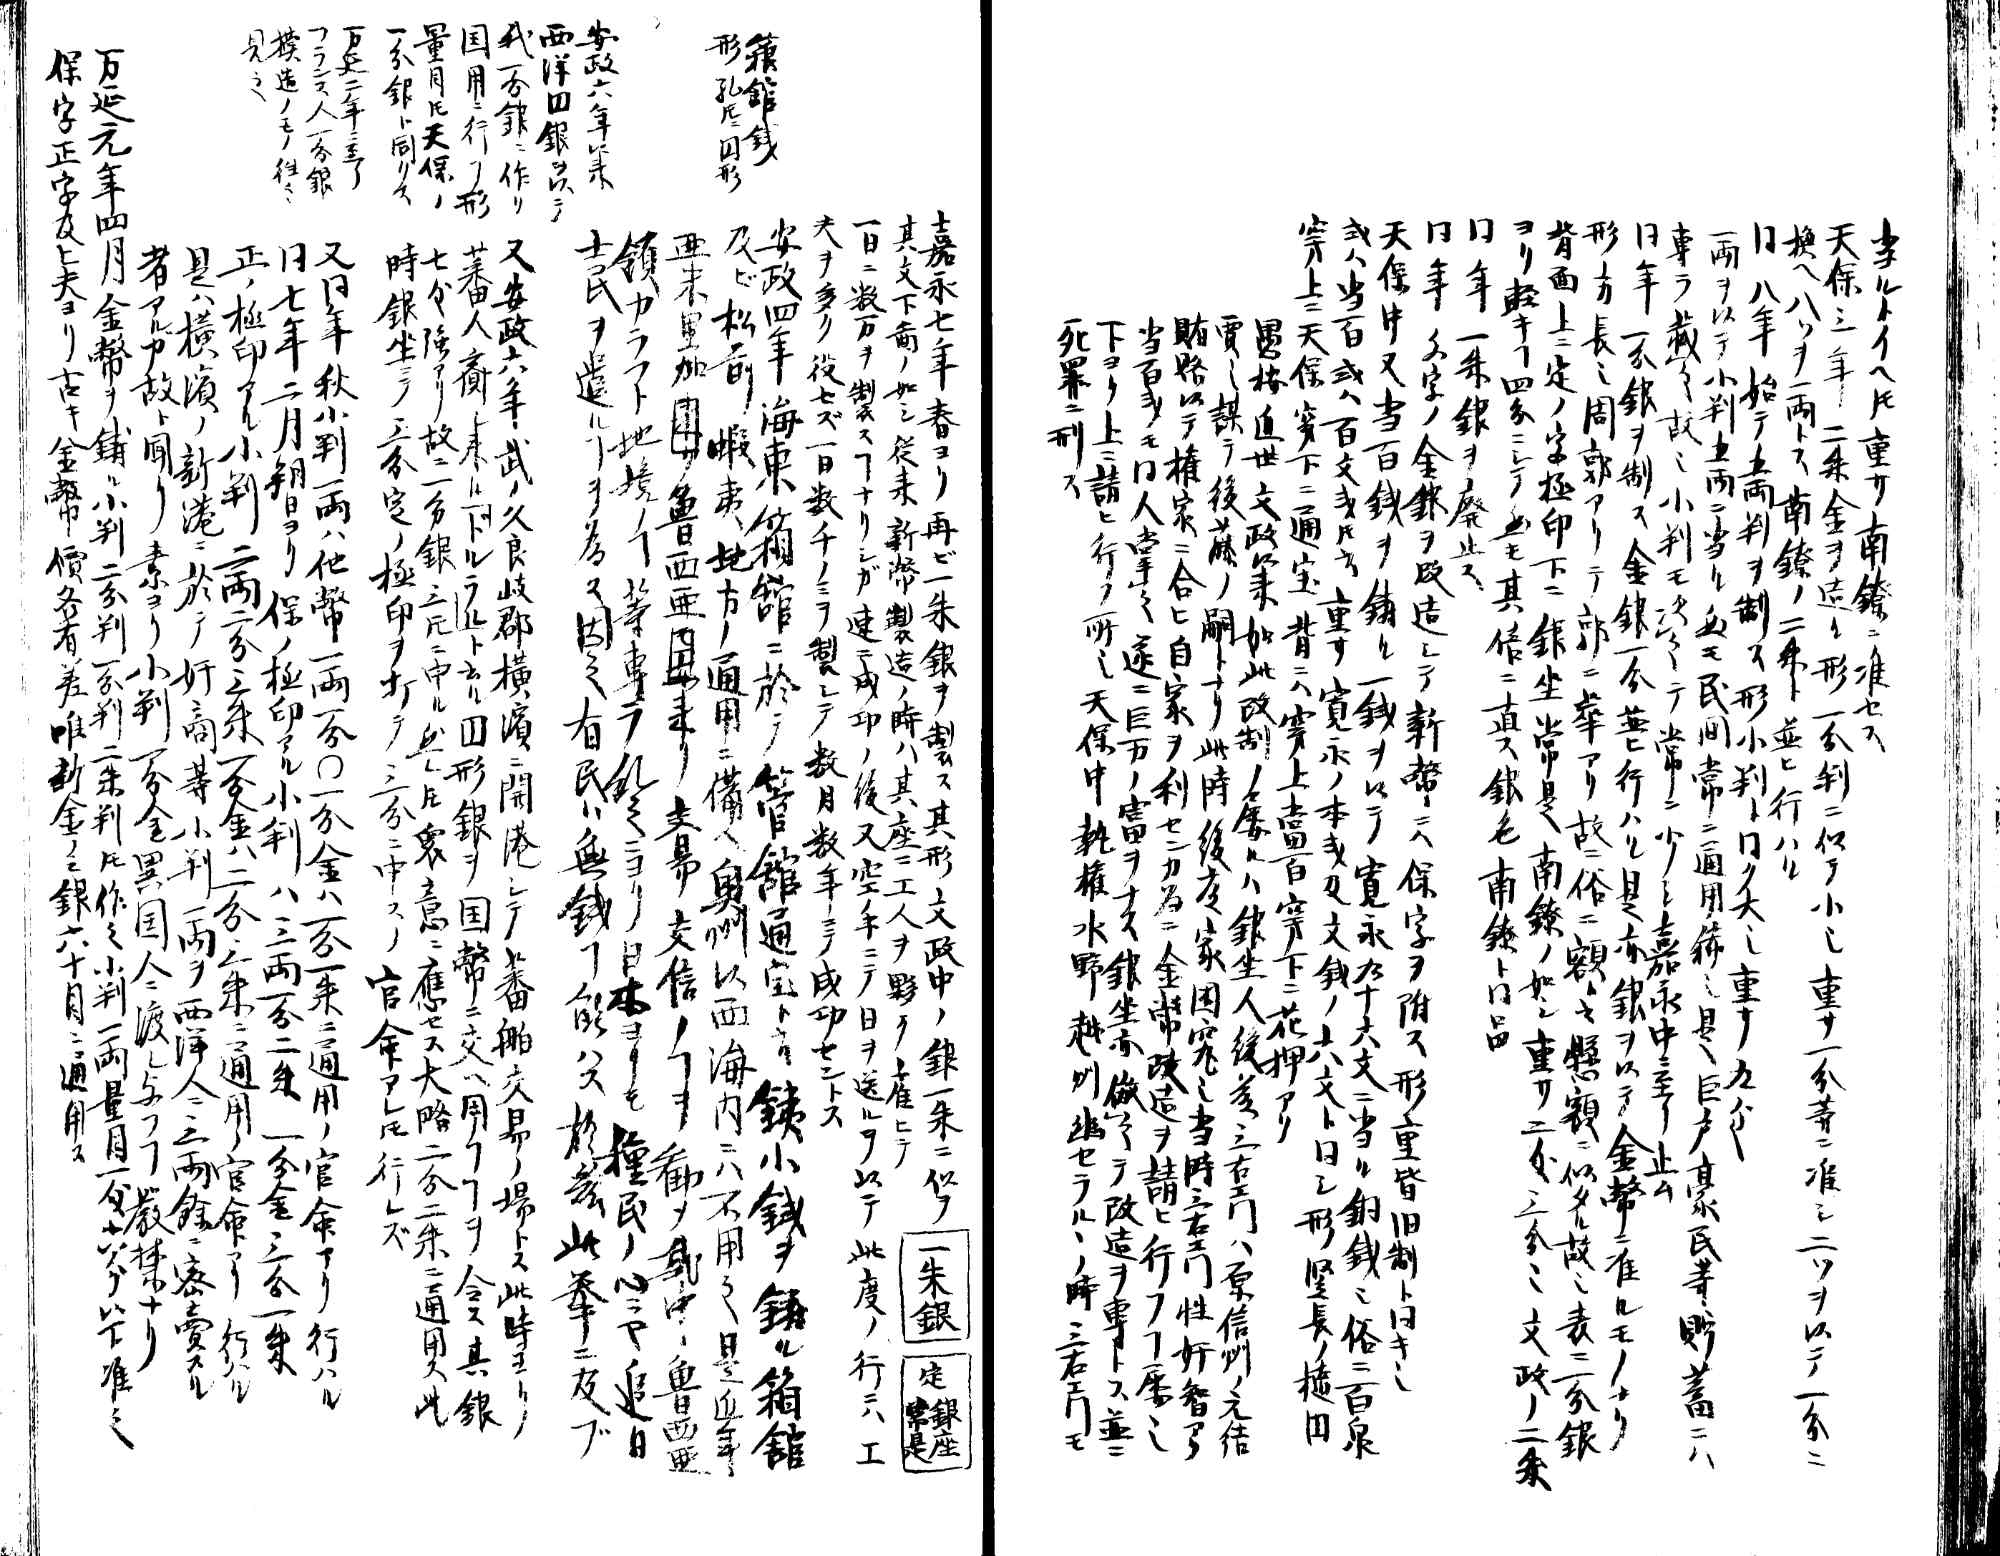 当ルトイヘ𪜈重サ南鐐ニ准セス
天保三年二朱金ヲ造ル形一分判ニ似テ小也重サ一分等ニ准シ二ツヲ以テ一分ニ
換ヘ八ツヲ一両トス南鐐ノ二朱ト並ヒ行ハル
同八年始テ五両判ヲ制ス形小判ト同ク大也重サ九分
一両ヲ以テ小判五両ニ当ル然モ民間常ニ通用稀也是巨戸豪民等貯蓄ニハ
専ラ蔵ス故也小判モ次之テ常ニ少シ嘉永中ニ至リ止ム
同年一分銀ヲ制ス金銀一分並ヒ行ハル是亦銀ヲ以テ金幣ニ准ルモノナリ
形方長也周郭アリテ郭ニ華アリ故ニ俗ニ額ト云懸額ニ似タル故也表ニ一分銀
背面上ニ定ノ字極印下ニ銀坐常是南鐐ノ如シ重サ二匁三分也文政ノ二朱
ヨリ軽キヿ四分ニシテ然モ其倍ニ直ス銀色南鐐ト同品
同年一朱銀ヲ廃止ス
同年文字ノ金銀ヲ改造シテ新幣ニハ保字ヲ附ス形重皆旧制ト同キ也
天保中又当百銭ヲ鋳ル一銭ヲ以テ寛永九十六文ニ当ル銅銭也俗ニ百泉
或ハ当百或ハ百文或𪜈云重サ寛永ノ本或及文銭ノ六文ト同シ形竪長ノ楕円
穿上ニ天保穿下ニ通宝背ニハ穿上當百穿下ニ花押アリ
愚按近世文政以来如此改制ノ屡ルハ銀坐人後藤三右エ門ハ原信州ノ元結
賈也謀テ後藤ノ嗣トナリ此時後藤家困窮也当時三右エ門性奸智アリ
賄賂以テ権家ニ合ヒ自家ヲ利センカ為ニ金幣改造ヲ請ヒ行フヿ屡也
当百或モ同人掌之遂ニ巨万ノ富ヲナス銀坐亦傚之テ改造ヲ専トス並ニ
下ヨリ上ニ請ヒ行フ所也天保中執権水野越州黜セラルヽノ時三右エ門モ
死罪ニ刑ス
嘉永七年春ヨリ再ビ一朱銀ヲ製ス其形文政中ノ銀一朱ニ似ヲ
一朱銀
定 銀座常是
其文下圖ノ如シ従来新幣製造ノ時ハ其座ニ工人ヲ夥ク雇ヒテ
一日ニ数万ヲ製スヿナリシガ連ニ成功ノ後又空手ニテ日ヲ送ルヲ以テ此度ノ行ニハ工
夫ヲ多ク役セズ一日数千ノミヲ製シテ数月数年ニテ成功セントス
箱館銭
形孔𪜈ニ円形
安政四年海東箱館ニ於テ管舘通宝ト云鉄小銭ヲ鋳ル箱舘
及ビ松前蝦夷地方ノ通用ニ備ヘ奥州以西海内ニハ不用之是近年
亜米里加国魯西亜国来リ交易交信ノヿヲ勧ヲ或中ニ魯西亜
領カラフト地境ノヿ等専ラ
士民ヲ遣ルヿヲ為ス因之有民ハ無銭ヿ能ハズ於茲此挙ニ友ブ
安政六年以来
西洋円銀ヲ以テ
我一分銀ニ作リ
国用ニ行フ形
量同𪜈天保ノ
一分銀ト同リス
又安政六年武ノ久良岐郡横濱ニ開港シテ蕃舶交易ノ場トス此時ヨリノ
蕃人齎シ来ルドルラルト云ル円形銀ヲ国幣ニ交ヘ用フヿヲ令ス其銀
七匁強アリ故ニ一分銀三𪜈ニ中ル然レ𪜈衆意ニ應セス大略二分二朱ニ通用ス此
時銀坐ニテ三分定ノ極印ヲ打テ三分ニ中スノ官命アレ𪜈行レズ
万延二年ニ至テ
フランス人一分銀
模造ノモノ往々
見之
又同年秋小判一両ハ他幣一両一分〇一分金ハ一分一朱ニ通用ノ官命アリ行ハル
同七年二月朔日ヨリ保ノ極印アル小判ハ三両一分二朱一分金三分一朱
正ノ極印アル小判二両二分三朱一分金ハ二分三朱ニ通用ノ官命アリ行ハル
是ハ横濱ノ新港ニ於テ奸商等小判一両ヲ西洋人ニ三両餘ニ密賣スル
者アルカ故ト聞リ素ヨリ小判一分金異国人ニ渡シ与フヿ嚴禁ナリ
万延元年四月金幣ヲ鋳ル小判二分判一分判二朱判𪜈作之小判一両量目以下准之
保字正字及ヒ夫ヨリ古キ金幣價各有差唯新金ノミ銀六十目ニ通用ス